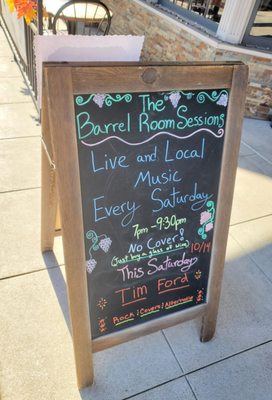 The
Barrel Room Sessions
Live and Local
Music
Every Saturday
7pm-9:30pm
No Cover!
(Just buy a glass of wine)
This Saturday 10/19
Tim Ford
Rock : Covers : Alternative